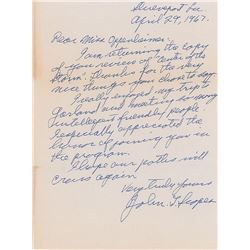 Shreveport La
April 29, 1967.
Dear Miss Oppenheimer:
I am returning the copy
of your review of "Center of the
Storm". Thanks for the very
nice things you chose to say.
I really enjoyed my trip to
Garland and meeting so many
intelligent friendly people
I especially appreciated the
honor of joining you in
the program.
I hope our paths will
cross again
Very truly yours
John T. Scopes